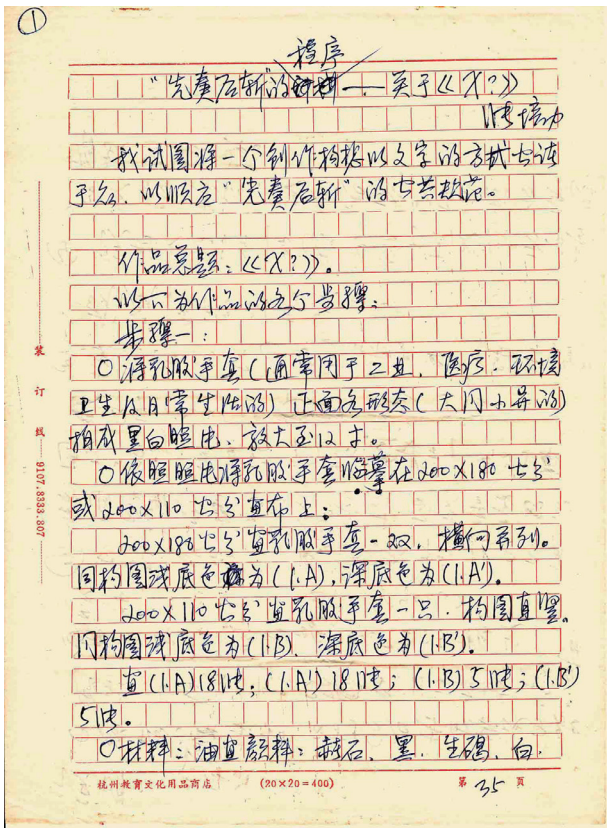 ①
程序
“先奏后斩”的——关于《X?》
张培力
我试图将一个创作构想以文字的方式告诸
于众，以顺应“先奏后斩”的公共规范。
作品总题：《X?》。
以下为作品的各个步骤：
步骤一：
○将乳胶手套（通常用于工业、医疗、环境
卫生及日常生活的）正面各形态（大同小异的）
拍成黑白照片、放大至12寸。
○依照照片将乳胶手套临摹在200×180公分
或200×110公分画布上：
200×180公分画乳胶手套一双，横向并列。
同构图浅底色为(1.A)，深底色为(1.A')。
200×110公分画乳胶手套一只，构图直竖。
同构图浅底色为(1.B)、深底色为(1.B')。
画(1.A)18张；(1.A')18张；(1.B)5张；(1.B')
5张。
○材料：油画颜料：赭石、黑、生褐、白、
装订线
9107.8333.807
杭州教育文化用品商店 (20×20=400) 第35页